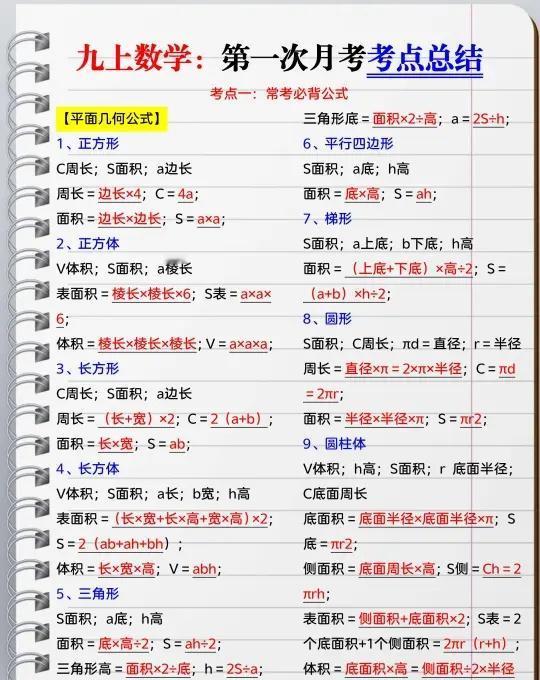 九上数学：第一次月考考点总结
考点一：常考必背公式
【平面几何公式】
1、正方形
C周长；S面积；a边长
周长=边长×4；C=4a;
面积=边长×边长；S=a×a;
2、正方体
V体积；S面积；a棱长
表面积=棱长×棱长×6；S表=a×a×
6;
体积=棱长×棱长×棱长;V=a×a×a;
3、长方形
C周长；S面积；a边长
周长=（长+宽）×2；C=2（a+b）;
面积=长×宽；S=ab;
4、长方体
V体积；S面积；a长；b宽；h高
表面积=（长×宽+长×高+宽×高）×2;
S=2（ab+ah+bh）;
体积=长×宽×高；V=abh;
5、三角形
S面积；a底；h高
面积=底×高÷2；S=ah÷2;
三角形高=面积×2÷底；h=2S÷a;
三角形底=面积×2÷高；a=2S÷h;
6、平行四边形
S面积；a底；h高
面积=底×高；S=ah;
7、梯形
S面积；a上底；b下底；h高
面积=（上底+下底）×高÷2；S=
（a+b）×h÷2;
8、圆形
S面积；C周长；πd=直径；r=半径
周长=直径×π=2×π×半径；C=πd
=2πr;
面积=半径×半径×π；S=πr2;
9、圆柱体
V体积；h高；S面积；r 底面半径；
C底面周长
底面积=底面半径×底面半径×π；S
底=πr2;
侧面积=底面周长×高；S侧=Ch=2
πrh;
表面积=侧面积+底面积×2；S表=2
个底面积+1个侧面积=2πr（r+h）;
体积=底面积×高=侧面积÷2×半径